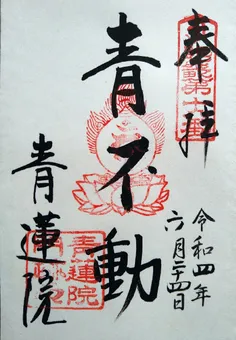 奉拝
青不動
令和四年
六月二十四日
青蓮院
青蓮院